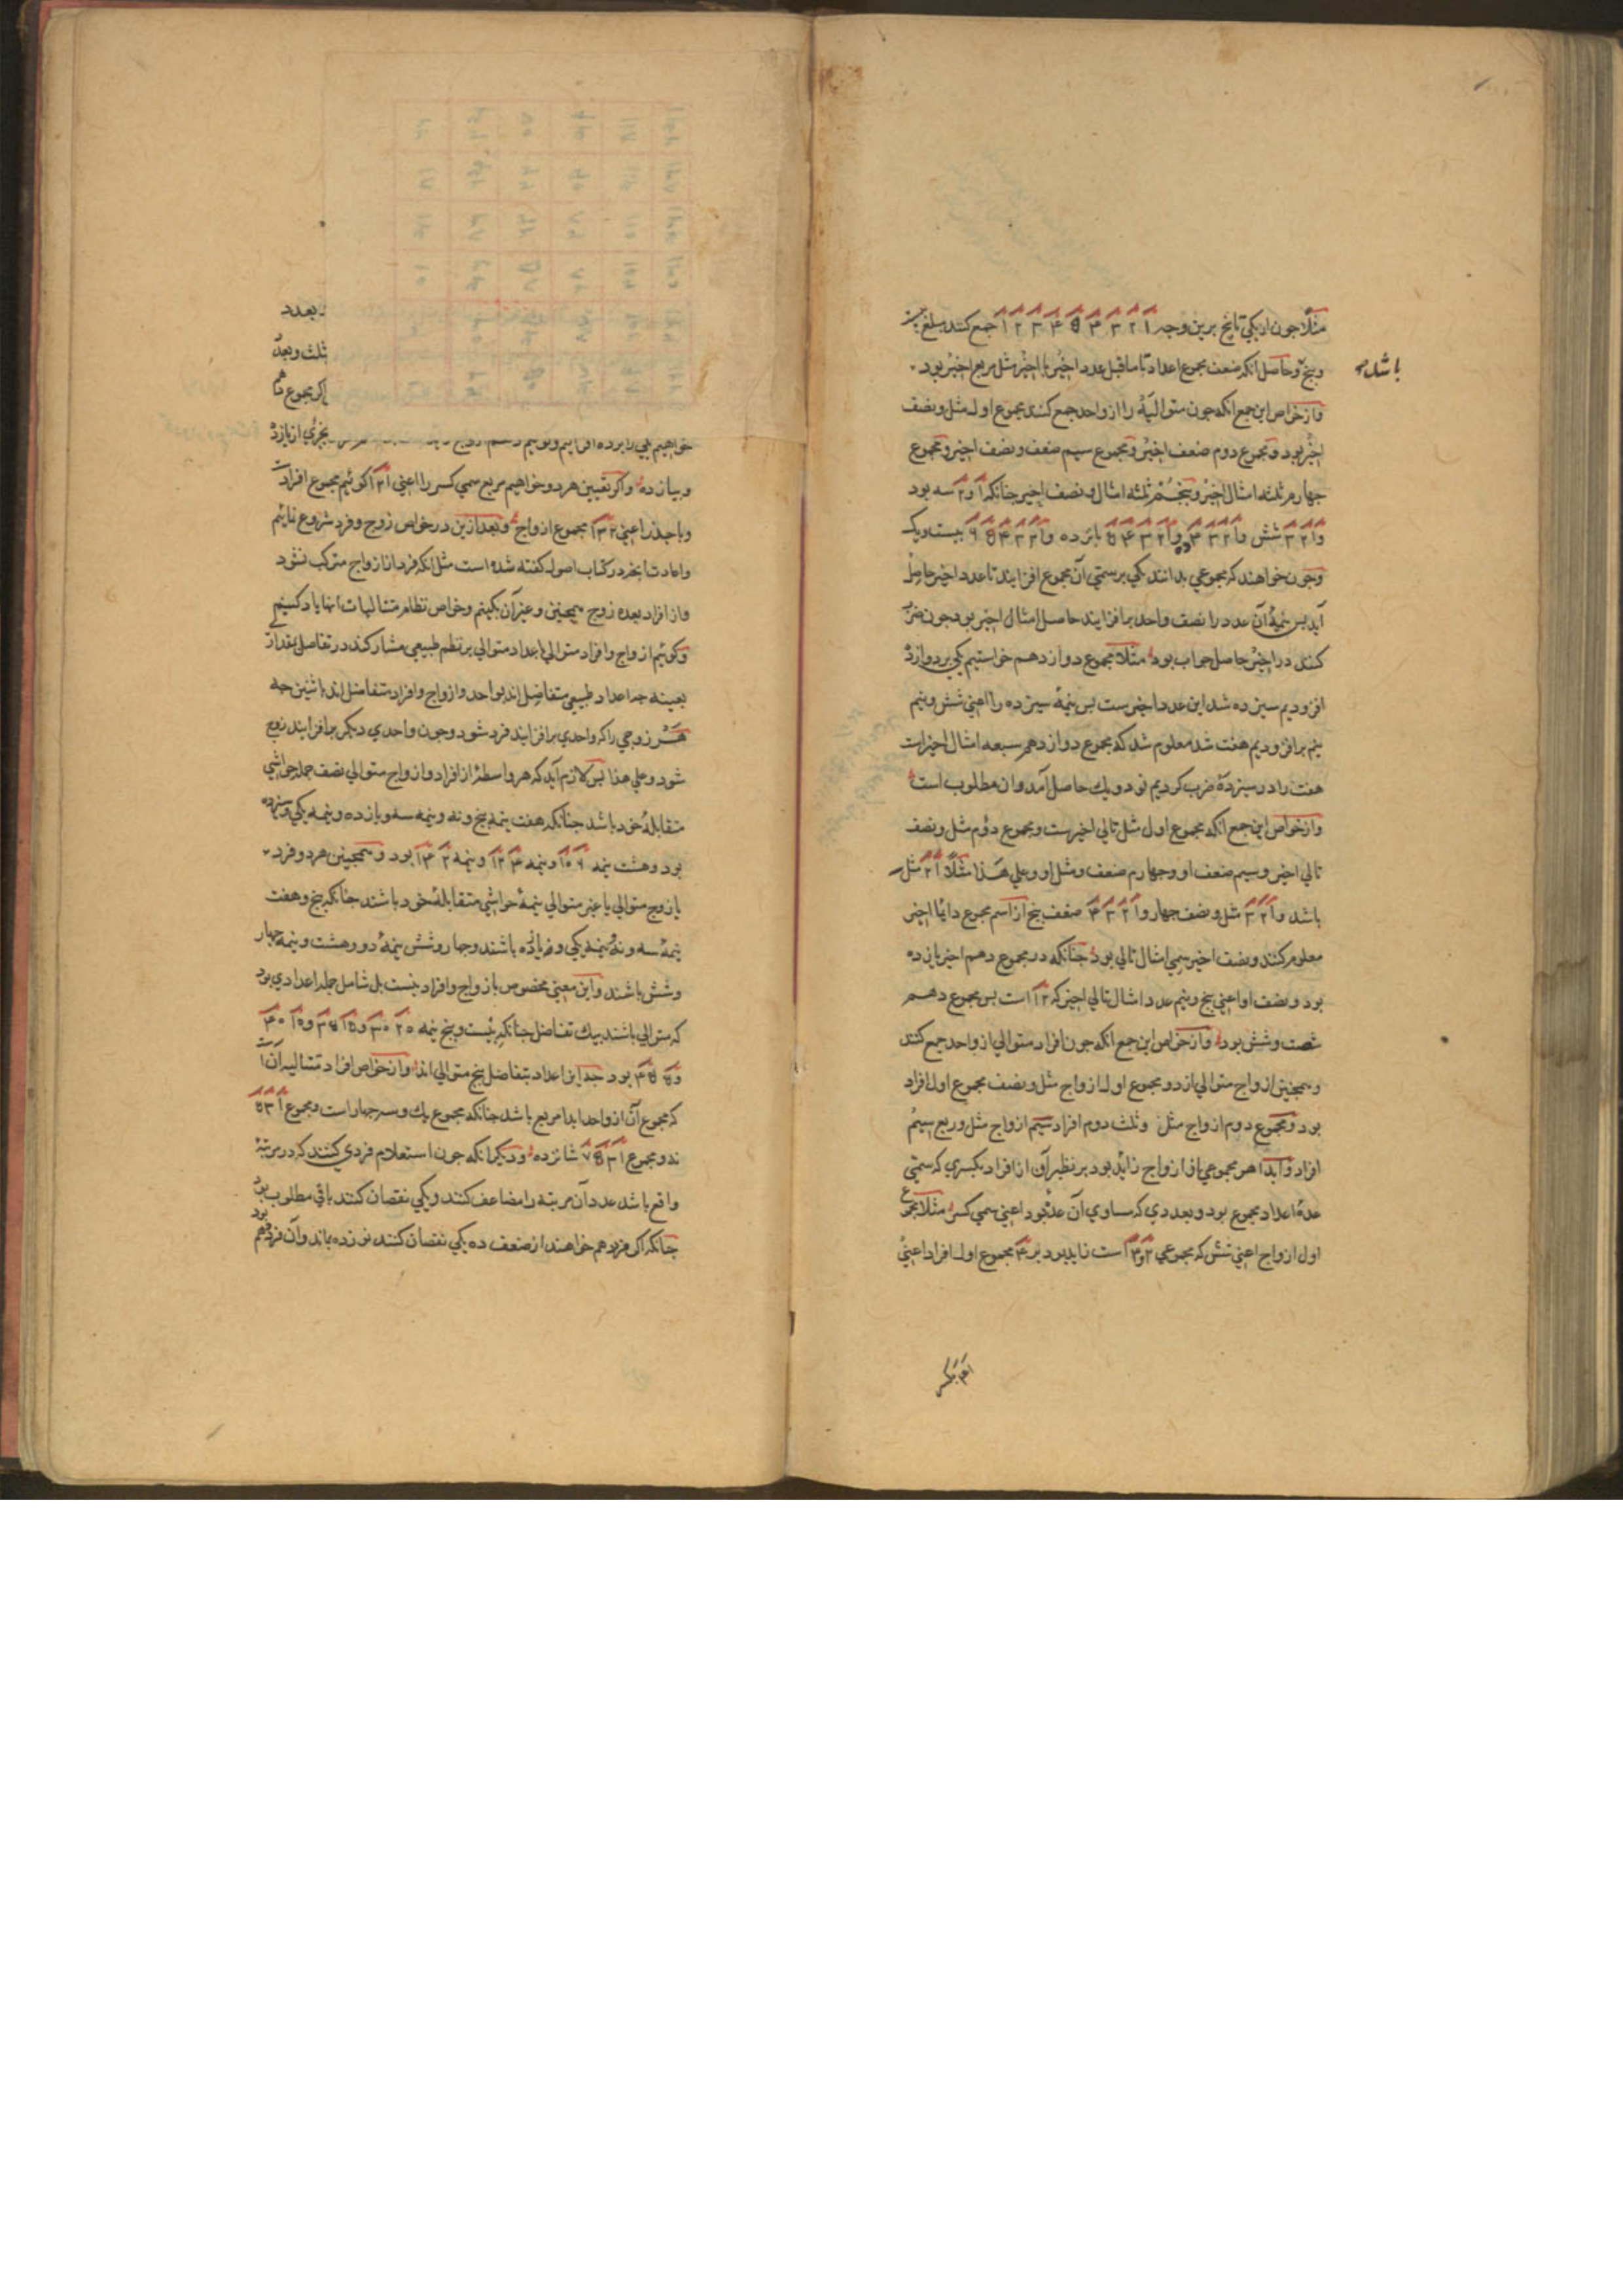 مثلا جون از یکی تا پنج برین وجه ۱ ۲ ۳ ۴ ۵ ۴ ۳ ۲ ۱ جمع کنند مبلغ بیست
و پنج و حاصل آنکه ضعف مجموع اعداد تا ماقبل عدد اخیر با اخیر مثل مربع اخیر بود
باشد
و از خواص این جمع آنکه جون متوالیه را از واحد جمع کنند مجموع اول مثل و نصف
اخیر بود و مجموع دوم ضعف اخیر و مجموع سیم ضعف و نصف اخیر و مجموع
جهارم ثلثه امثال اخیر و پنجم ثلثه امثال و نصف اخیر جنانکه ۱ و ۲ سه بود
و ۱ ۲ ۳ شش و ۱ ۲ ۳ ۴ ده و ۱ ۲ ۳ ۴ ۵ پانزده و ۱ ۲ ۳ ۴ ۵ ۶ بیست و یک
و جون خواهند که مجموعی بدانند یکی بر سمی آن مجموع افزایند تا عدد اخیر حاصل
آید پس نیمهٔ آن عدد را نصف واحد برافزایند حاصل امثال اخیر بود جون ضرب
کنند در اخیر حاصل جواب بود مثلا مجموع دوازدهم خواستیم یکی بر دوازده
افزودیم سیزده شد این عدد اخیرست بس نیمهٔ سیزده را اعنی شش و نیم
نیم برافزودیم هفت شد معلوم شد که مجموع دوازدهم سبعه امثال اخیرست
هفت را در سیزده ضرب کردیم نود و یک حاصل آمد و ان مطلوب است
و از خواص این جمع آنکه مجموع اول مثل تالی اخیرست و مجموع دوم مثل و نصف
تالی اخیر و سیم ضعف او و جهارم ضعف و مثل او و علی هذا مثلا ۱ ۲ مثل
باشد و ۱ ۲ ۳ مثل و نصف جهار و ۱ ۲ ۳ ۴ ضعف پنج از اسم مجموع دایما اخیر
معلوم کنند و نصف اخیر سمی امثال تالی بود جنانکه در مجموع دهم اخیر یازده
بود و نصف او اعنی پنج و نیم عدد امثال تالی اخیر که ۱۲ است بس مجموع دهم
شصت و شش بود و از خواص این جمع آنکه جون افراد متوالی از واحد جمع کنند
و همجنین ازواج متوالی از دو مجموع اول ازواج مثل و نصف مجموع اول افراد
بود و مجموع دوم ازواج مثل و ثلث دوم افراد سیم ازواج مثل و ربع سیم
افراد و ابدا هر مجموعی از ازواج زاید بود بر نظیر آن از افراد بکسری که سمی
عدهٔ اعداد مجموع بود و بعددی که مساوی آن عده بود اعنی سمی کسر مثلا مجموع
اول ازواج اعنی شش که مجموعی ۲ و ۴ است زاید بود بر ۴ مجموع اول افراد اعنی
بعدد
ثلث و بعد
اکر مجموع
خواهیم یکی را بر ده افزاییم بجزی از یازده
و بیازده و اکر تعیین هر دو خواهیم مربع سمی کسر را اعنی ۱۲۱ کوئیم مجموع افراد
و با جذر اعنی ۱۳۲ مجموع ازواج و بعد ازین در خواص زوج و فرد شروع نمائیم
و اعادت آنجه در کتاب اصول کفته شده است مثل آنکه فرد از ازواج مترکب نشود
و از افراد بعده زوج همجنین و غیر آن نکنیم و خواص نظام متتالیات آنها یاد کنیم
و کوئیم ازواج و افراد متوالی با اعداد متوالی بر نظم طبیعی مشارکند در تفاضل بمقدار
بعینه جه اعداد طبیعی متفاضل اند بواحد و ازواج و افراد متفاضل اند باثنین جه
هر زوجی را که واحدی برافزایند فرد شود و جون واحدی دیکر برافزایند زوج
شود و علی هذا بس لازم آید که هر واسطهٔ از افراد و ازواج متوالی نصف جمله حواشی
متقابلهٔ خود باشد جنانکه هفت نیمه پنج و نه و نیمه سه و یازده و نیمه یکی و سیزده
بود و هشت نیمه ۶ ۱۰ و نیمه ۴ ۱۲ و نیمه ۲ ۱۴ بود و همجنین هر دو فرد
یا زوج متوالی یا غیر متوالی نیمهٔ حواشی متقابلهٔ خود باشند جنانکه پنج و هفت
نیمهٔ سه و نه و نیمهٔ یکی و یازده باشند و جهار و شش نیمهٔ دو و هشت و نیمه جهار
و شش باشند و این معنی مخصوص بازواج و افراد نیست بل شامل جمله اعدادی بود
که متوالی باشند بیک تفاضل جنانکه بیست و پنج نیمه ۲۰ ۳۰ و ۱۵ ۳۵ و ۱۰ ۴۰
و ۵ ۴۵ بود جه این اعداد بتفاضل پنج متوالی اند و از خواص افراد متتالیه آن است
که مجموع آن از واحد ابدا مربع باشد جنانکه مجموع یک و سه جهار است و مجموع ۱ ۳ ۵
نه و مجموع ۱ ۳ ۵ ۷ شانزده و دیکر آنکه جون استعلام فردی کنند که در مرتبهٔ
واقع باشد عدد آن مرتبه را مضاعف کنند و یکی نقصان کنند باقی مطلوب بود
جنانکه اکر فرد دهم خواهند از ضعف ده یکی نقصان کنند نوزده بماند و آن فرد دهم
بود